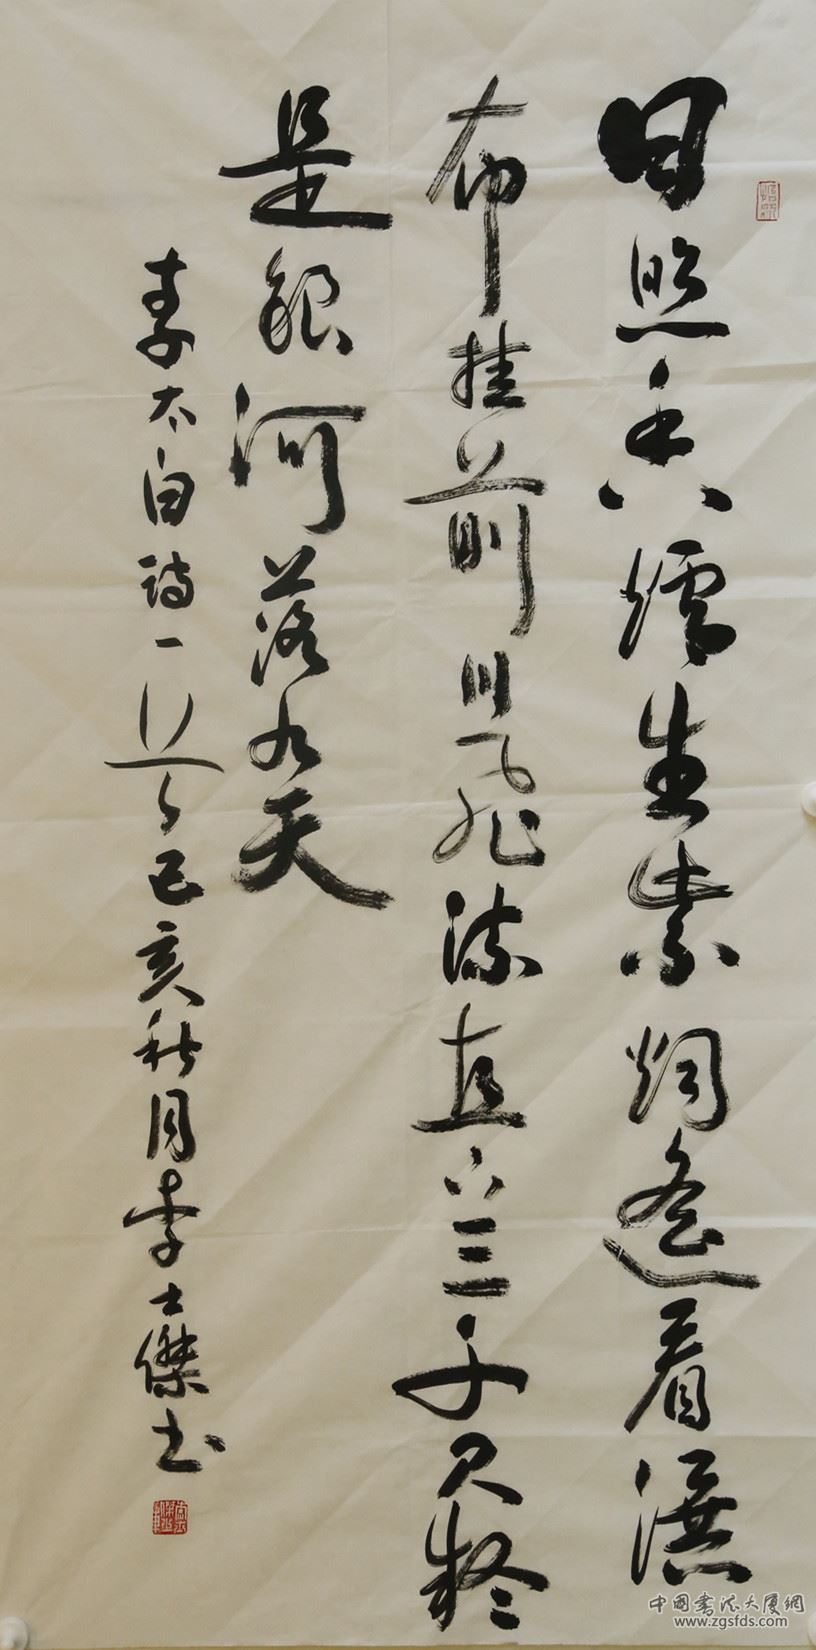 日照香爐生紫烟遙看瀑
布挂前川飛流直下三千尺疑
是銀河落九天
李太白詩一首己亥秋月李士傑书
中國書法大廈網
www.zgsfds.com